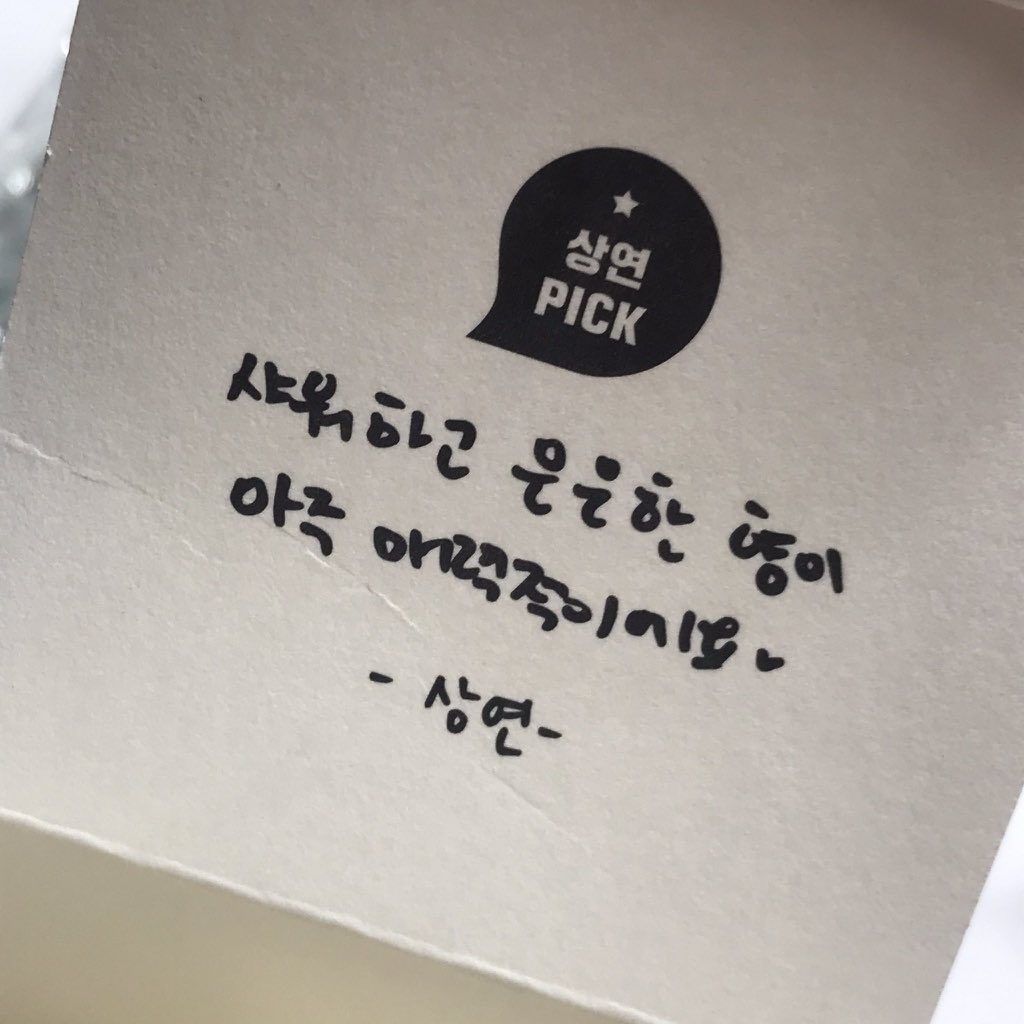 상연
PICK
샤워하고 은은한 향이
아주 매력적이에요
- 상연-